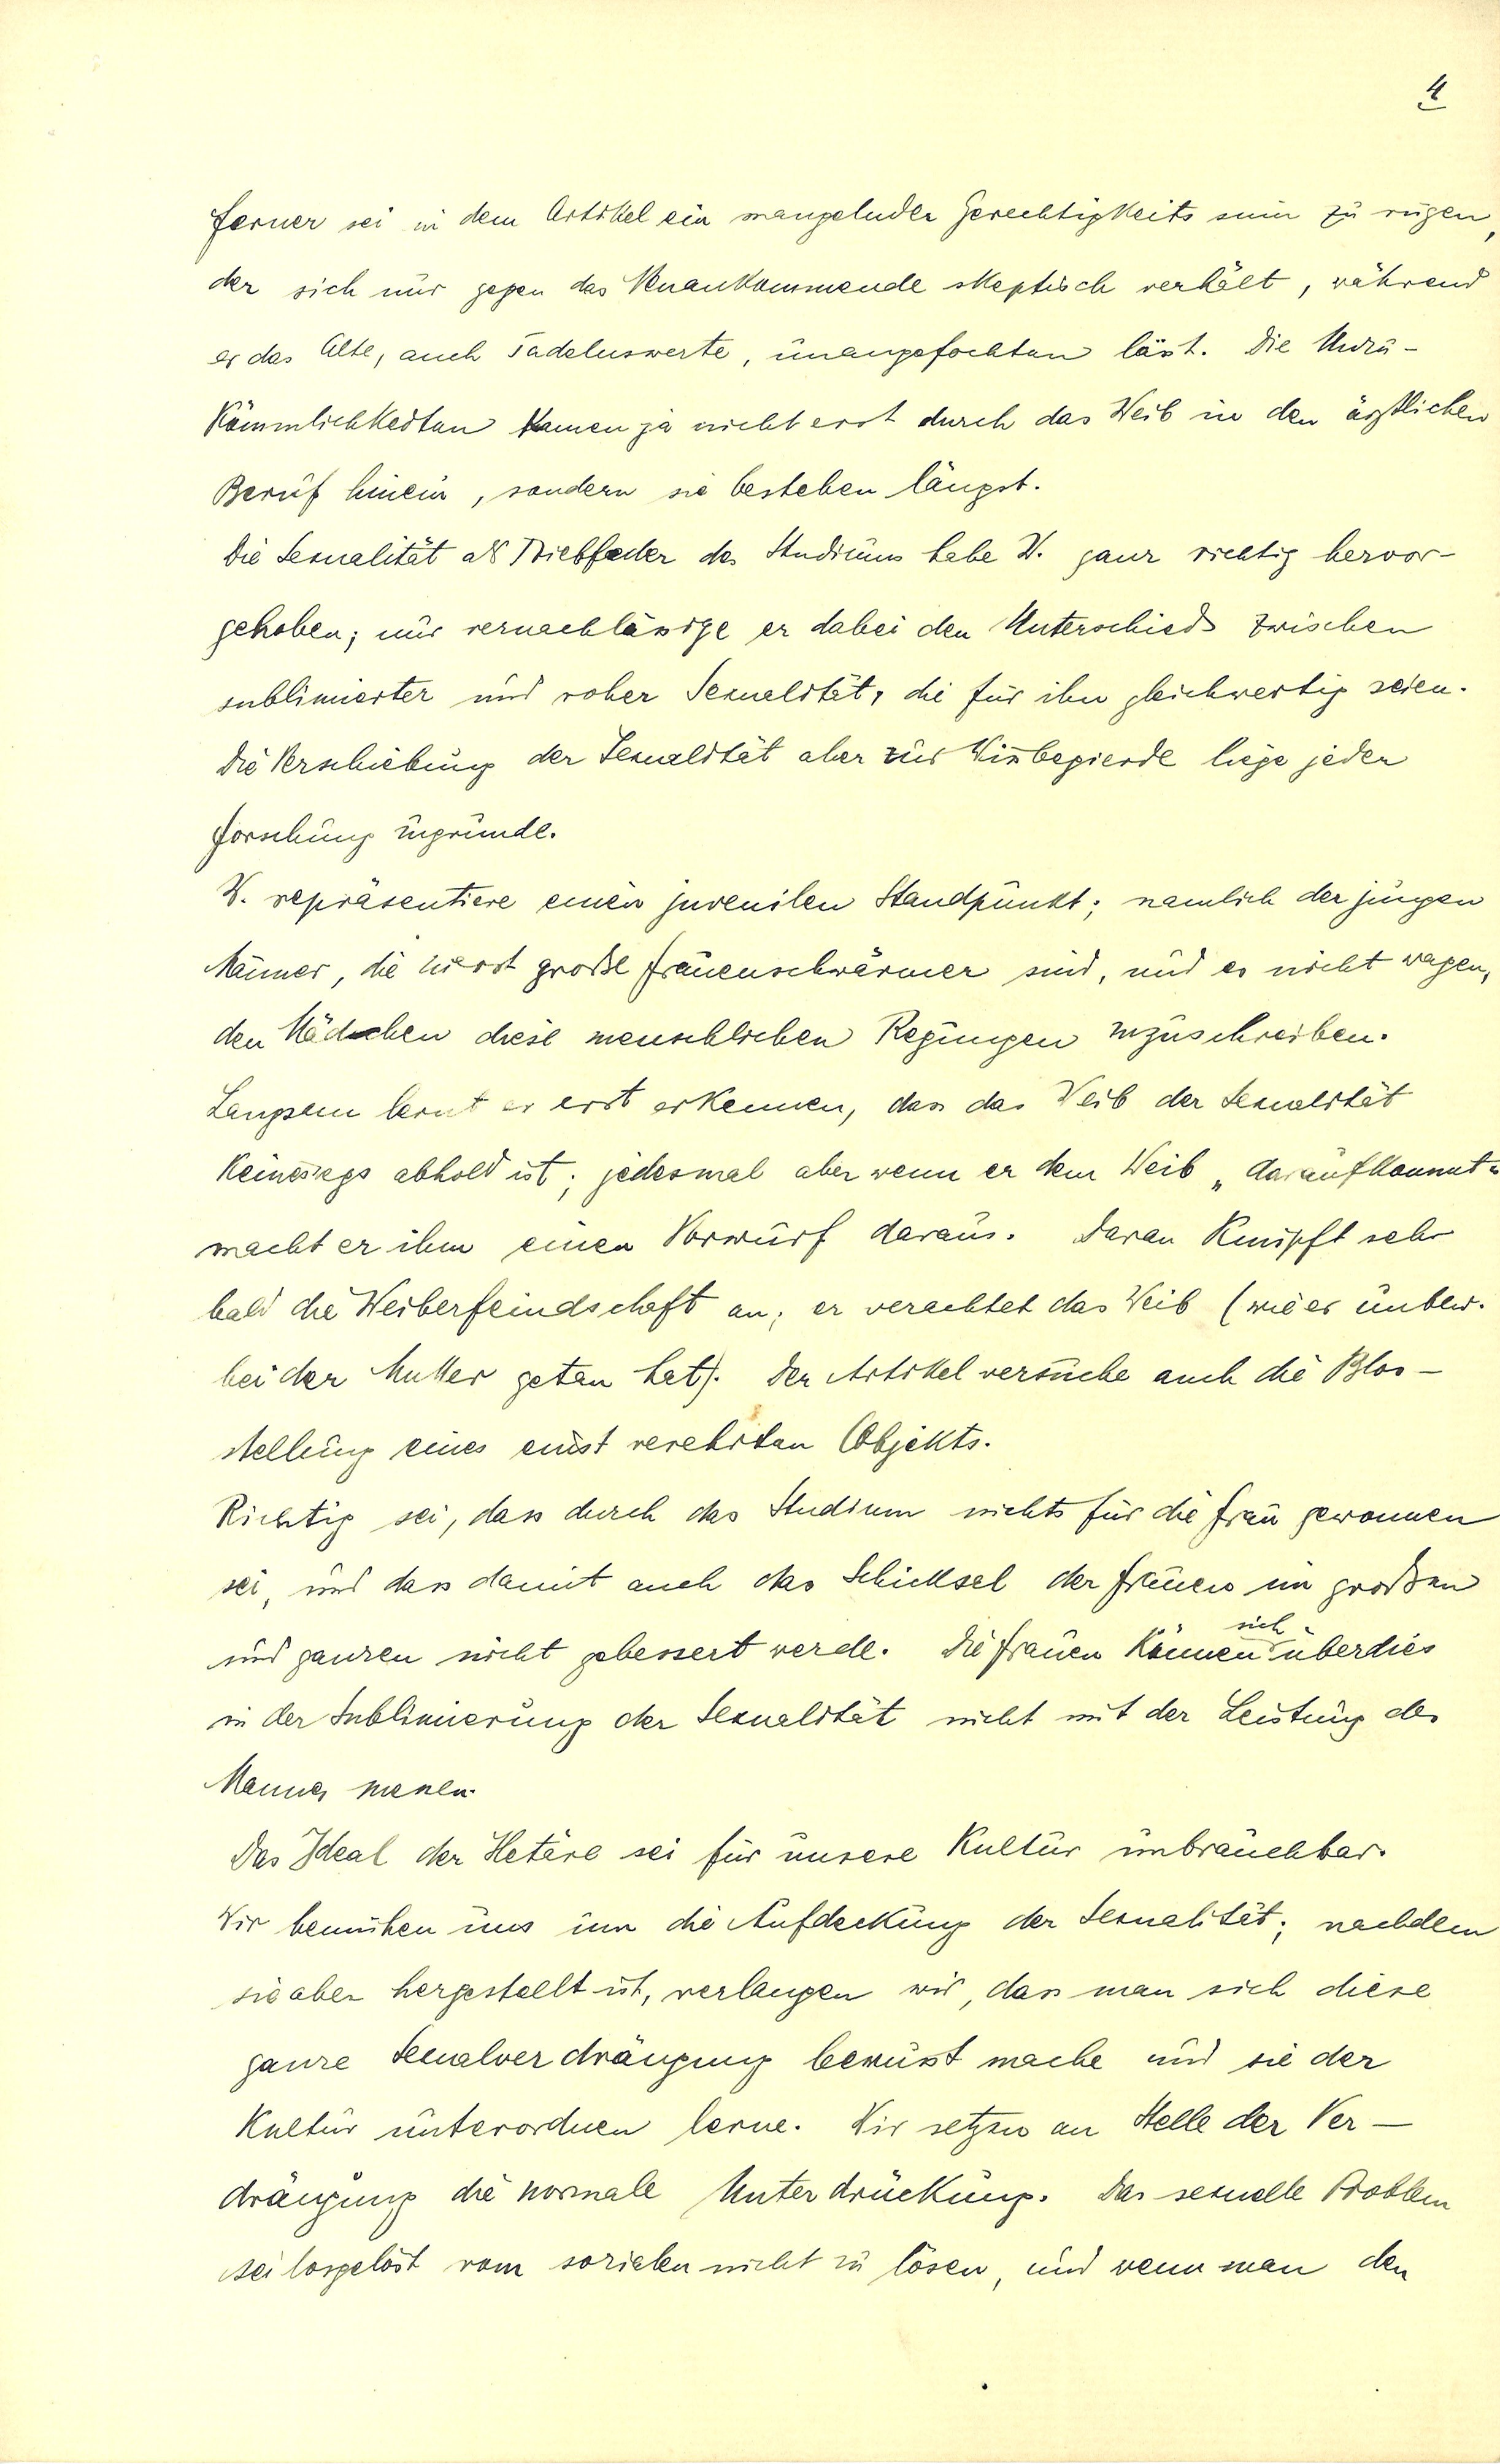 4
Ferner sei in dem Artikel ein mangelnder Gerechtigkeitssinn zu rügen,
der sich nur gegen das Neuankommende skeptisch verhält, während
er das Alte, auch Tadelnswerte, unangefochten lässt. Die Unzu-
kömmlichkeiten kamen ja nicht erst durch das Weib in den ärztlichen
Beruf hinein, sondern sie bestehen längst.
Die Sexualität als Triebfeder des Studiums habe W. ganz richtig hervor-
gehoben; nur vernachlässige er dabei den Unterschied zwischen
sublimierter und roher Sexualität, die für ihn gleichwertig seien.
Die Verschiebung der Sexualität aber zur Wissbegierde liege jeder
Forschung zugrunde.
W. repräsentiere einen juvenilen Standpunkt; namlich der jungen
Männer, die zuerst große Frauenschwärmer sind, und es nicht wagen,
den Mädchen diese menschlichen Regungen zuzuschreiben.
Langsam lernt er erst erkennen, dass das Weib der Sexualität
keineswegs abhold ist; jedesmal aber wenn er dem Weib „daraufkommt"
macht er ihm einen Vorwurf daraus. Daran knüpft sehr
bald die Weiberfeindschaft an; er verachtet das Weib (wie er unbew.
bei der Mutter getan hat). Der Artikel versuche auch die Blos-
stellung eines einst verehrten Objekts.
Richtig sei, dass durch das Studium nichts für die Frau gewonnen
sei, und dass damit auch das Schicksal der Frauen im großen
und ganzen nicht gebessert werde. Die Frauen können sich überdies
in der Sublimierung der Sexualität nicht mit der Leistung des
Mannes messen.
Das Ideal der Hetäre sei für unsere Kultur unbrauchbar.
Wir bemühen uns um die Aufdeckung der Sexualität; nachdem
sie aber hergestellt ist, verlangen wir, dass man sich diese
ganze Sexualverdrängung bewusst mache und sie der
Kultur unterordnen lerne. Wir setzen an Stelle der Ver-
drängung die normale Unterdrückung. Das sexuelle Problem
sei losgelöst vom sozialen nicht zu lösen, und wenn man den